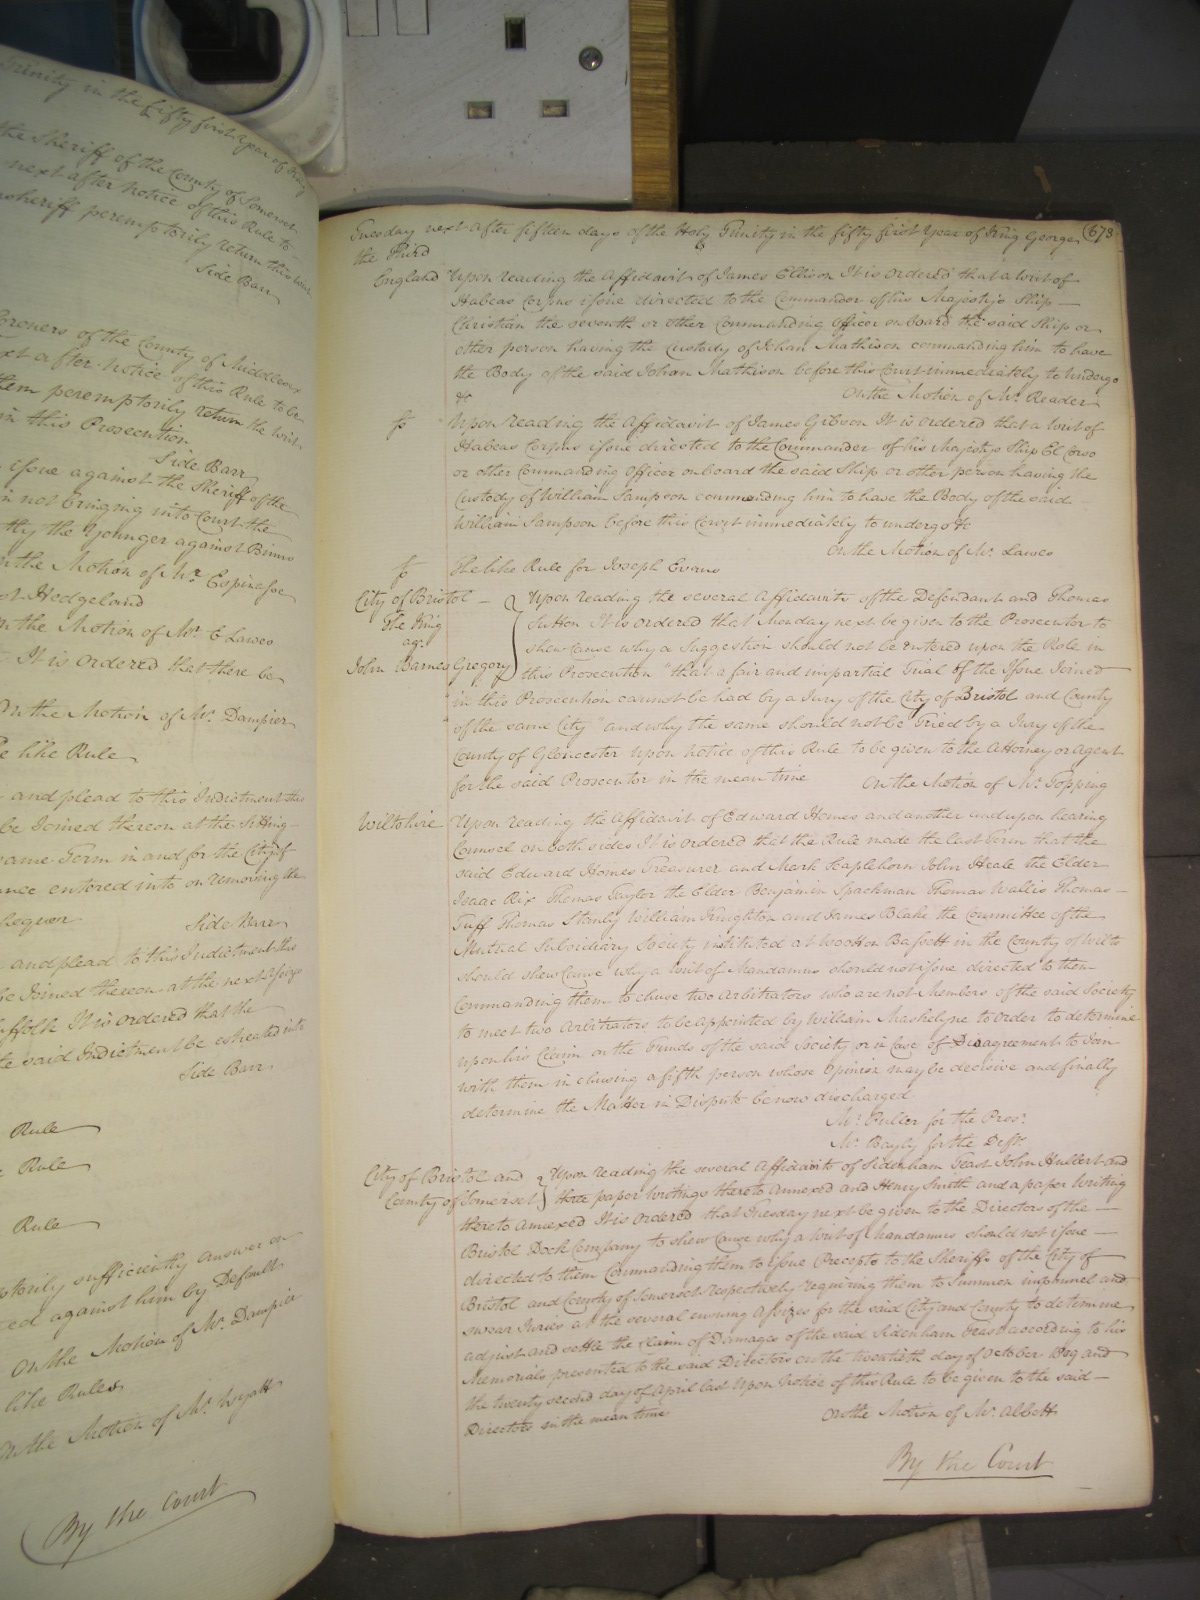 Trinity in the fifty first Year of King
the Sheriff of the County of Somerset
next after Notice of this Rule to
sheriff peremptorily return this writ
Side Barr
Coroners of the County of Middlesex
next after notice of this Rule to be
them peremptorily return the writ
in this Prosecution
Side Barr
issue against the Sheriff of the
in not bringing into Court the
the Younger against Binns
n the Motion of Mr. Espinasse
Hedgeland
n the Motion of Mr. E Lawes
It is ordered that there be
On the Motion of Mr. Dampier
like Rule
and plead to this Indictment this
be Joined thereon at the Sitting
same Term in and for the City of
entered into on removing the
Side Barr
and plead to this Indictment this
be Joined thereon at the next Assizes
Suffolk It is ordered that the
said Indictment be estreated into
Side Barr
Rule
Rule
Rule
sufficiently answer or
against him by Default
On the Motion of Mr. Dampier
like Rules
On the Motion of Mr. Wyatt
By the Court
Tuesday next after fifteen days of the Holy Trinity in the fifty first Year of King George 673
the Third
England Upon reading the Affidavit of James Ellison It is ordered that a writ of
Habeas Corpus issue directed to the Commander of his Majestys Ship
Christian the seventh or other Commanding Officer on board the said Ship or
other person having the Custody of Johan Mathison commanding him to have
the Body of the said Johan Mathison before this Court immediately to undergo
&c On the Motion of Mr. Reader
Upon reading the Affidavit of James Gibson It is ordered that a writ of
Habeas Corpus issue directed to the Commander of his Majestys Ship El Corso
or other Commanding Officer on board the said Ship or other person having the
Custody of William Sampson commanding him to have the Body of the said
William Sampson before this Court immediately to undergo &c
On the Motion of Mr. Lawes
The like Rule for Joseph Evans
City of Bristol Upon reading the several Affidavits of the Defendant and Thomas
The King Sutton It is ordered that Monday next be given to the Prosecutor to
agt. shew cause why a Suggestion should not be entered upon the Role in
John Barnes Gregory this Prosecution "that a fair and impartial Trial of the Issue Joined
"in this Prosecution cannot be had by a Jury of the City of Bristol and County
"of the same City" and why the same should not be Tried by a Jury of the
County of Gloucester upon notice of this Rule to be given to the Attorney or Agent
for the said Prosecutor in the mean time On the Motion of Mr. Topping
Wiltshire Upon reading the Affidavit of Edward Homes and another and upon hearing
Counsel on both sides It is ordered that the Rule made the last Term that the
said Edward Homes Treasurer and Mark Scaplehorn John Heale the Elder
Isaac Rix Thomas Taylor the Elder Benjamin Spackman Thomas Wallis Thomas
Tuff Thomas Stanly William Knighton and James Blake the Committee of the
Mutual Subsidiary Society instituted at Wootton Bassett in the County of Wilts
should shew Cause why a writ of Mandamus should not issue directed to them
Commanding them to chuse two Arbitrators who are not Members of the said Society
to meet two Arbitrators to be appointed by William Maskelyne to order to determine
upon his Claim on the Funds of the said Society or in Case of Disagreement to Join
with them in chusing a fifth person whose Opinion may be decisive and finally
determine the Matter in Dispute be now discharged
Mr. Puller for the Pros.
Mr. Bayly for the Deft.
City of Bristol and Upon reading the several Affidavits of Sidenham Teast John Hullett and
County of Somerset three paper Writings thereto Annexed and Henry Smith and a paper Writing
thereto annexed It is ordered that Tuesday next be given to the Directors of the
Bristol Dock Company to shew Cause why a Writ of Mandamus should not issue
directed to them Commanding them to Issue Precepts to the Sheriffs of the City of
Bristol and County of Somerset respectively requiring them to Summon impannel and
swear Juries at the several ensuing Assizes for the said City and County to determine
adjust and settle the Claim of Damages of the said Sidenham Teast according to his
Memorials presented to the said Directors on the twentieth day of October 1809 and
the twenty second day of April last Upon Notice of this Rule to be given to the said
Directors in the mean time On the Motion of Mr. Abbott
By the Court